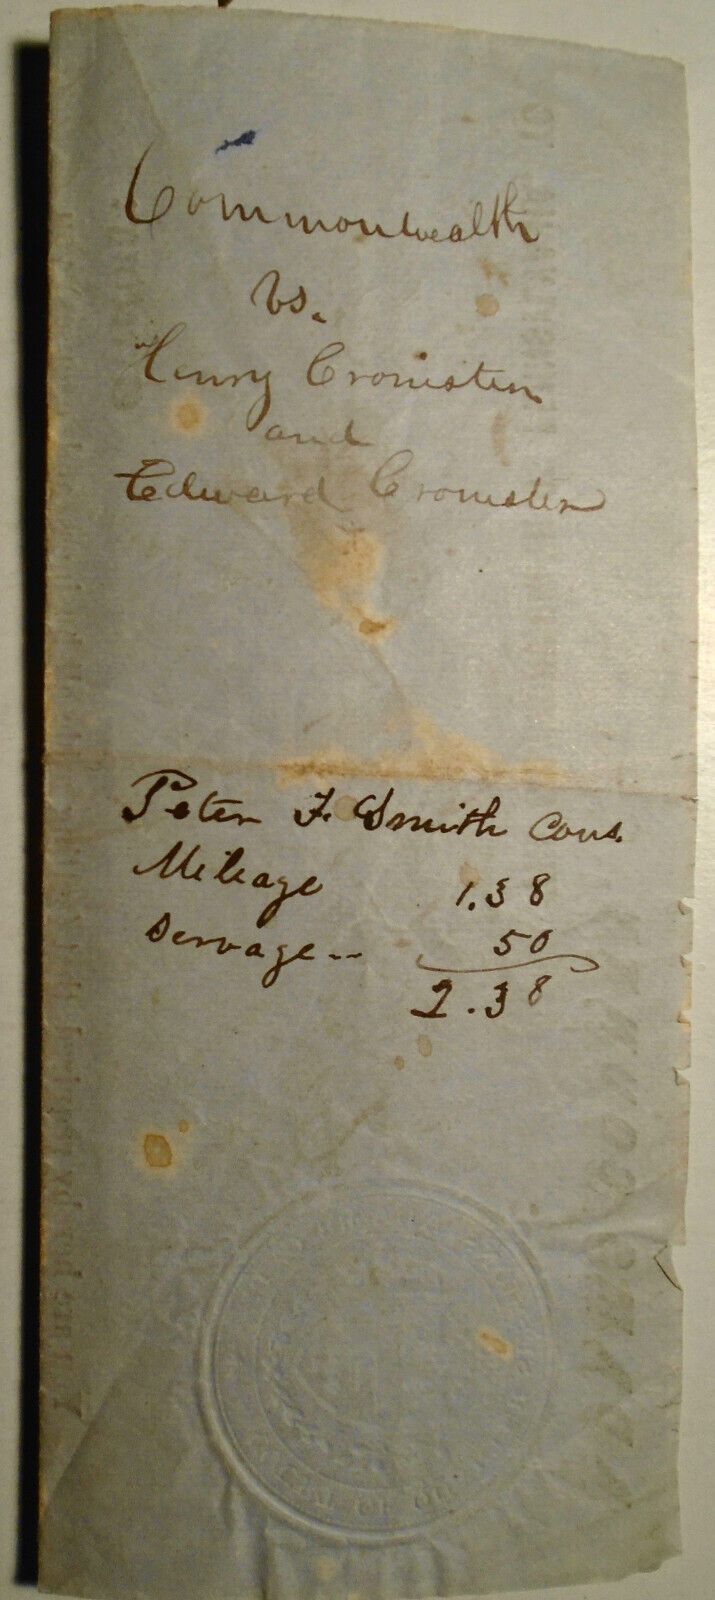 Commonwealth
vs.
Henry Cronister
and
Edward Cronister
Peter F. Smith Cons.
Mileage 1.38
Servage -- 50
2.38